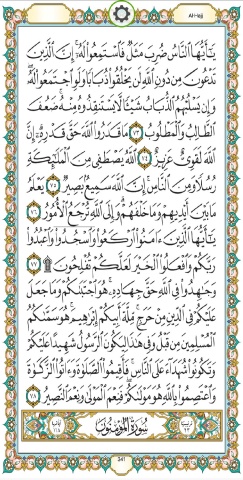 Al-Hajj
يَٰٓأَيُّهَا ٱلنَّاسُ ضُرِبَ مَثَلٞ فَٱسۡتَمِعُواْ لَهُۥٓۚ إِنَّ ٱلَّذِينَ
تَدۡعُونَ مِن دُونِ ٱللَّهِ لَن يَخۡلُقُواْ ذُبَابٗا وَلَوِ ٱجۡتَمَعُواْ لَهُۥۖ
وَإِن يَسۡلُبۡهُمُ ٱلذُّبَابُ شَيۡـٔٗا لَّا يَسۡتَنقِذُوهُ مِنۡهُۚ ضَعُفَ
ٱلطَّالِبُ وَٱلۡمَطۡلُوبُ ٧٣ مَا قَدَرُواْ ٱللَّهَ حَقَّ قَدۡرِهِۦٓۚ إِنَّ
ٱللَّهَ لَقَوِيٌّ عَزِيزٌ ٧٤ ٱللَّهُ يَصۡطَفِي مِنَ ٱلۡمَلَٰٓئِكَةِ
رُسُلٗا وَمِنَ ٱلنَّاسِۚ إِنَّ ٱللَّهَ سَمِيعُۢ بَصِيرٞ ٧٥ يَعۡلَمُ
مَا بَيۡنَ أَيۡدِيهِمۡ وَمَا خَلۡفَهُمۡۚ وَإِلَى ٱللَّهِ تُرۡجَعُ ٱلۡأُمُورُ ٧٦
يَٰٓأَيُّهَا ٱلَّذِينَ ءَامَنُواْ ٱرۡكَعُواْ وَٱسۡجُدُواْۤ وَٱعۡبُدُواْ
رَبَّكُمۡ وَٱفۡعَلُواْ ٱلۡخَيۡرَ لَعَلَّكُمۡ تُفۡلِحُونَ۩ ٧٧
وَجَٰهِدُواْ فِي ٱللَّهِ حَقَّ جِهَادِهِۦۚ هُوَ ٱجۡتَبَىٰكُمۡ وَمَا جَعَلَ
عَلَيۡكُمۡ فِي ٱلدِّينِ مِنۡ حَرَجٖۚ مِّلَّةَ أَبِيكُمۡ إِبۡرَٰهِيمَۚ هُوَ سَمَّىٰكُمُ
ٱلۡمُسۡلِمِينَ مِن قَبۡلُ وَفِي هَٰذَا لِيَكُونَ ٱلرَّسُولُ شَهِيدًا عَلَيۡكُمۡ
وَتَكُونُواْ شُهَدَآءَ عَلَى ٱلنَّاسِۚ فَأَقِيمُواْ ٱلصَّلَوٰةَ وَءَاتُواْ ٱلزَّكَوٰةَ
وَٱعۡتَصِمُواْ بِٱللَّهِ هُوَ مَوۡلَىٰكُمۡۖ فَنِعۡمَ ٱلۡمَوۡلَىٰ وَنِعۡمَ ٱلنَّصِيرُ ٧٨
سُورَةُ المُؤۡمِنُونَ
341